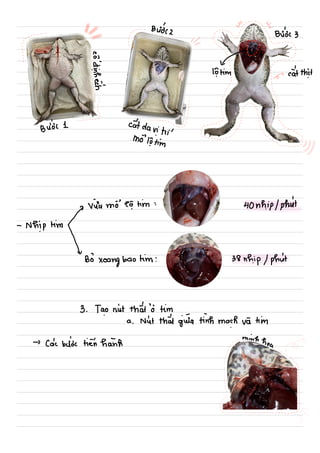 Bước 1
cố định ếch
Bước 2
cắt da vị trí
mổ lộ tim
Bước 3
lộ tim
cắt thịt
- Nhịp tim
Vừa mổ lộ tim :
40 nhịp / phút
Bỏ xoang bao tim :
38 nhịp / phút
3. Tạo nút thắt ở tim
a. Nút thắt giữa tĩnh mạch và tim
→ Các bước tiến hành
minh họa